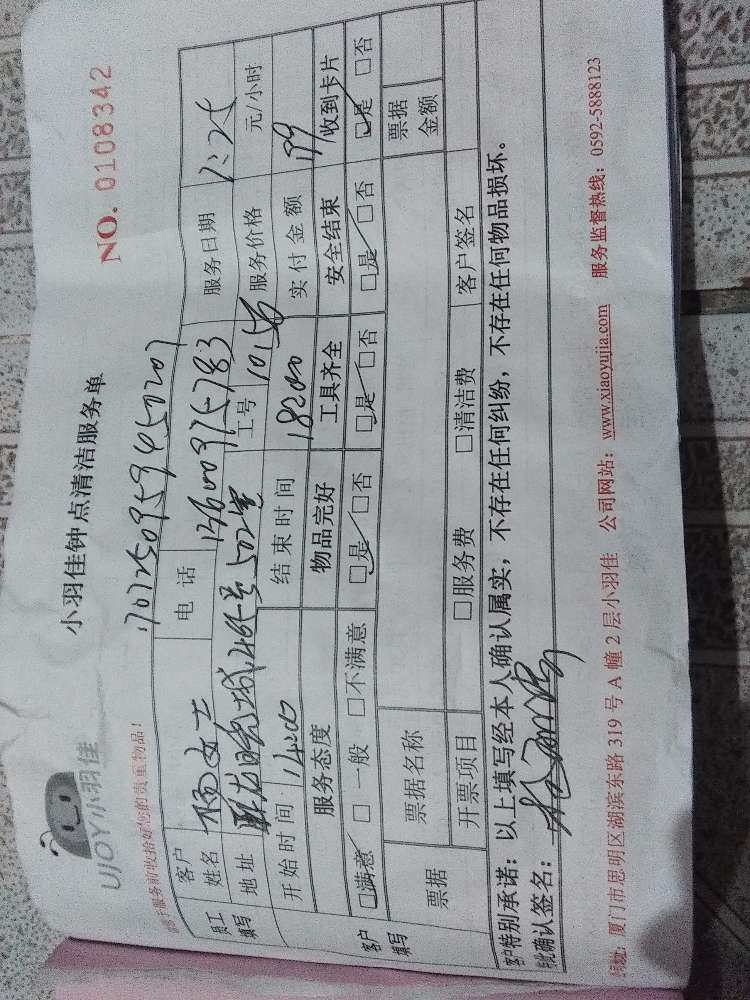 UJOY小羽佳
小羽佳钟点清洁服务单
NO. 0108342
请于服务前收拾好您的贵重物品！
员工填写
客户姓名 杨女士 电话 服务日期 7.25
地址 服务价格 元/小时
工号
开始时间 14:00 结束时间 18:00 实付金额 199
客户填写
服务态度 物品完好 工具齐全 安全结束 收到卡片
□满意 □一般 □不满意 □是 □否 □是 □否 □是 □否 □是 □否
票据 票据名称 票据金额
开票项目 □服务费 □清洁费 客户签名
客户特别承诺：以上填写经本人确认属实，不存在任何纠纷，不存在任何物品损坏。
确认签名：
网址：厦门市思明区湖滨东路 319 号 A 幢 2 层小羽佳 公司网站：www.xiaoyujia.com 服务监督热线：0592-5888123